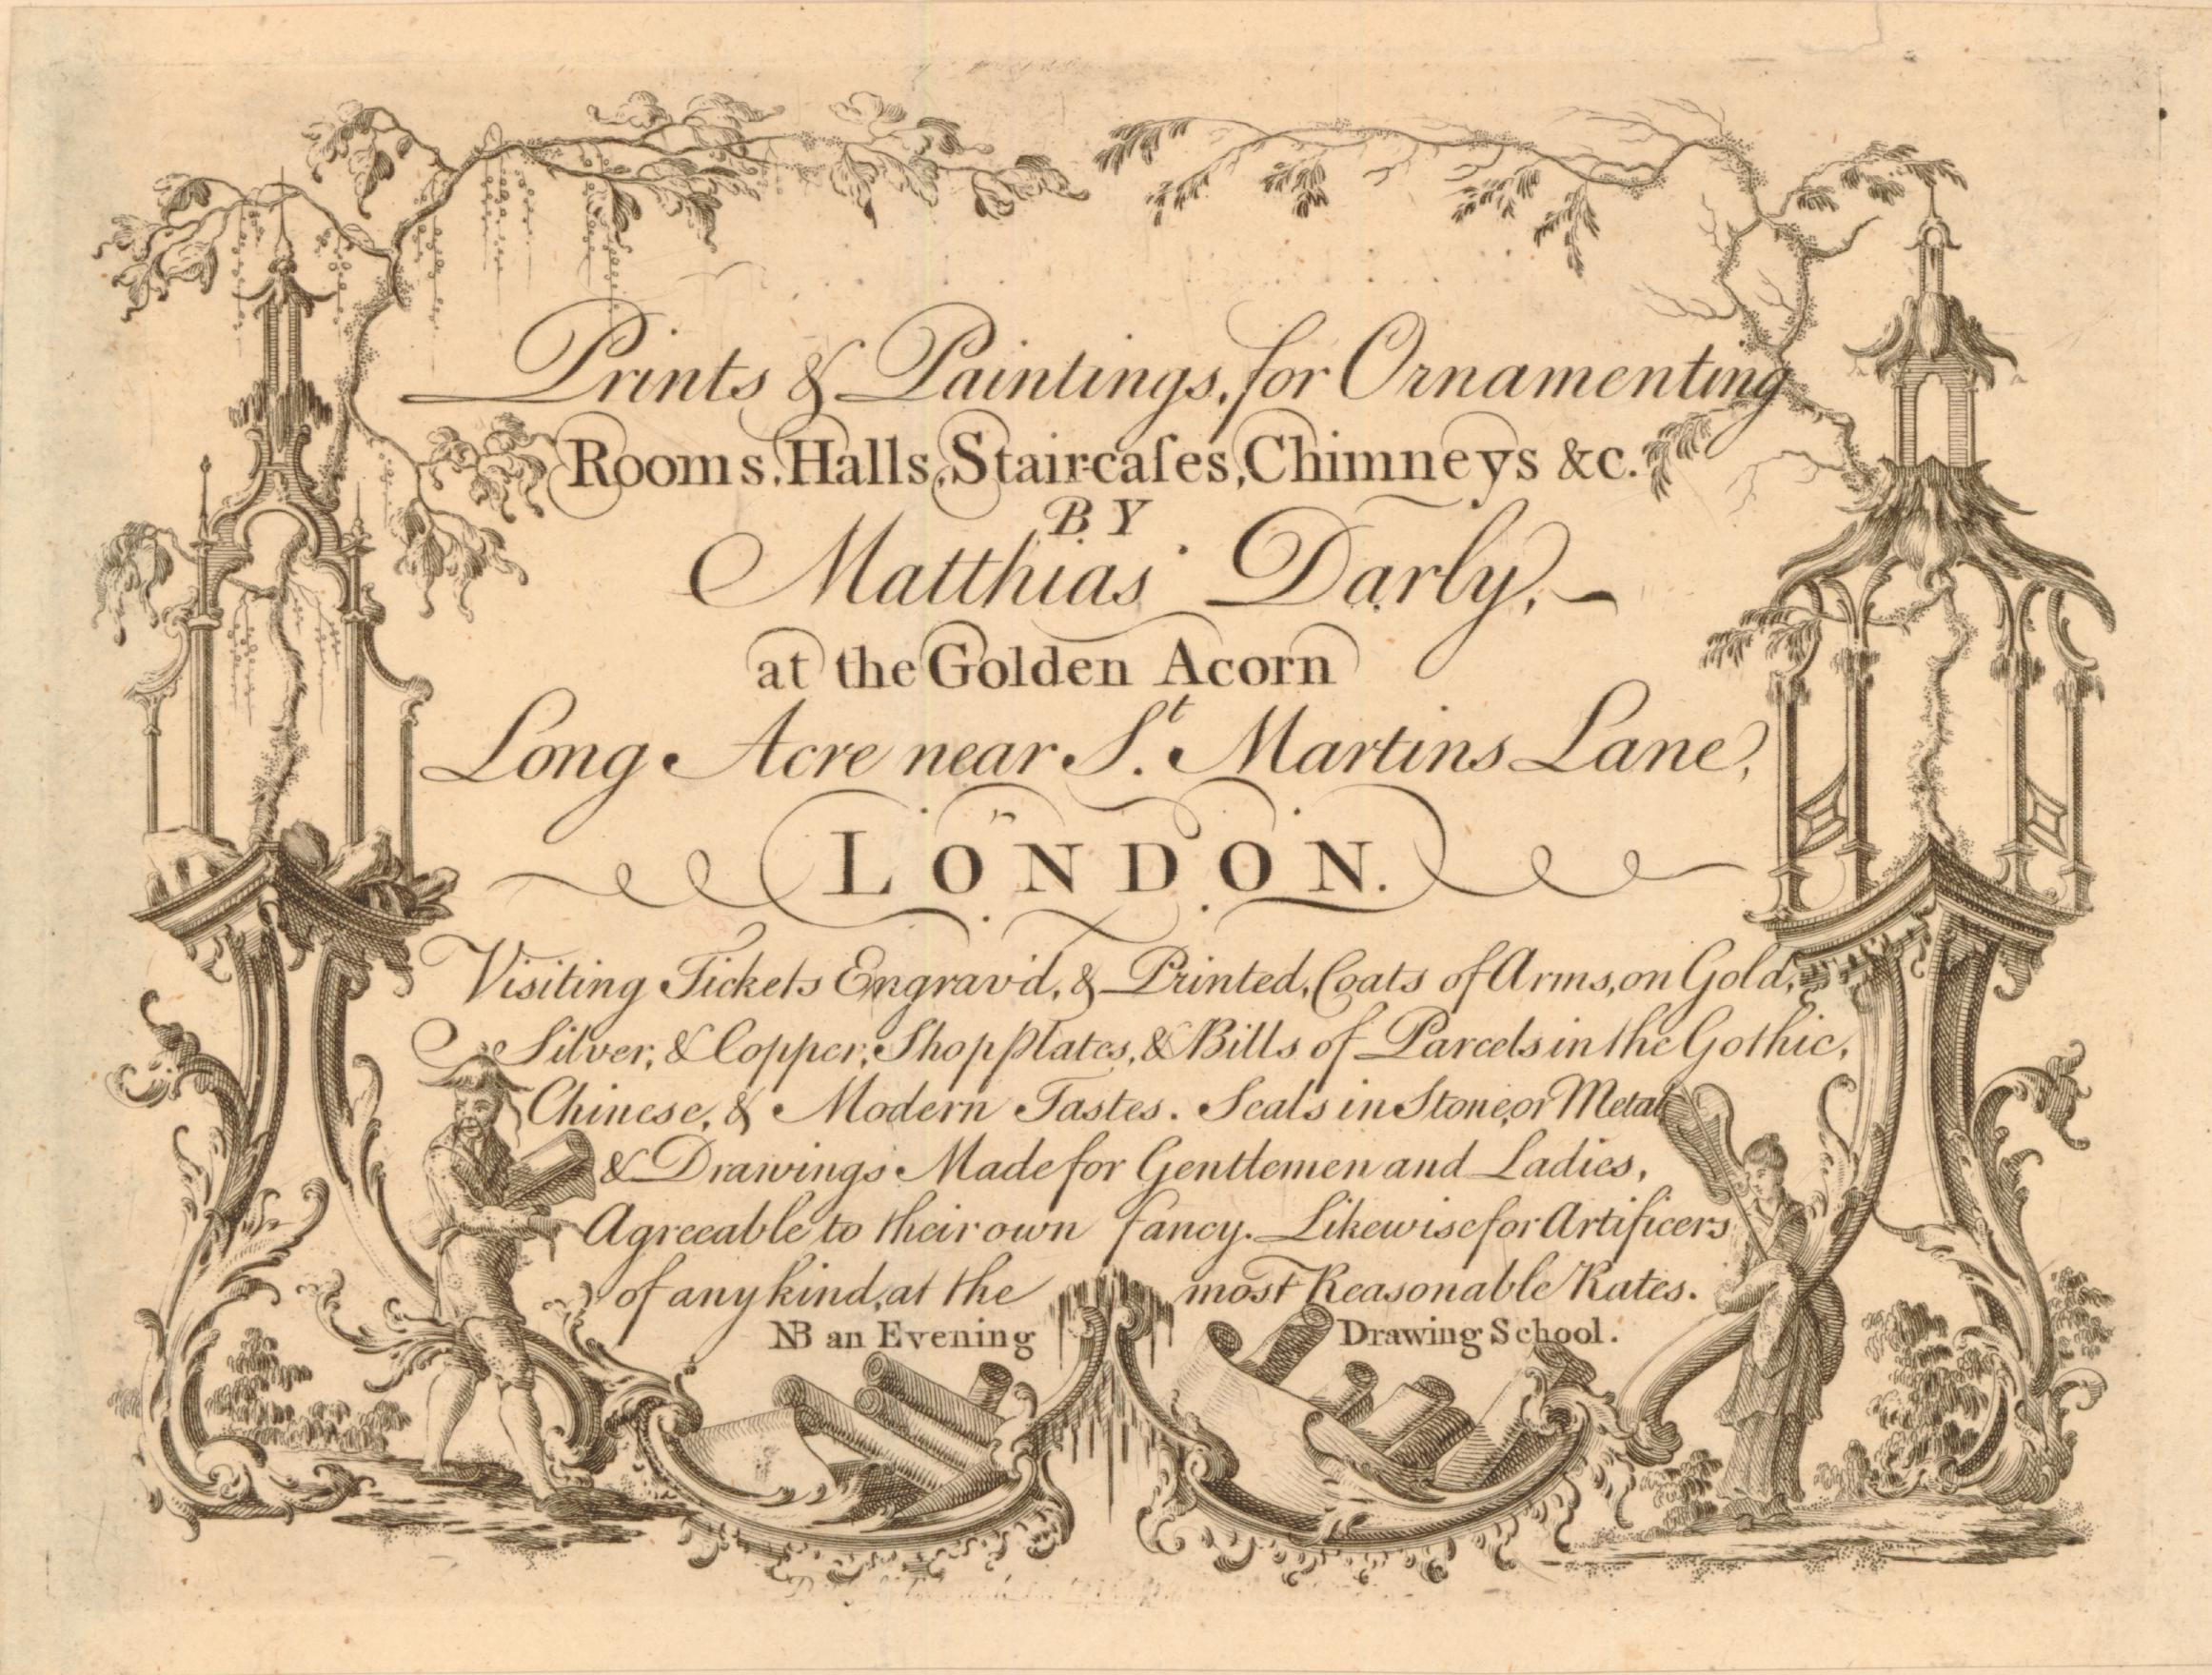 Prints & Paintings, for Ornamenting
Rooms, Halls, Stair-caſes, Chimneys &c.
BY
Matthias Darly,
at the Golden Acorn
Long Acre near St. Martins Lane,
LONDON.
Visiting Tickets Engrav'd, & Printed, Coats of Arms, on Gold,
Silver, & Copper, Shop plates, & Bills of Parcels in the Gothic,
Chinese, & Modern Tastes. Seals in Stone, or Metal
& Drawings Made for Gentlemen and Ladies,
Agreeable to their own fancy. Likewise for Artificers
of any kind, at the most Reasonable Rates.
NB an Evening Drawing School.